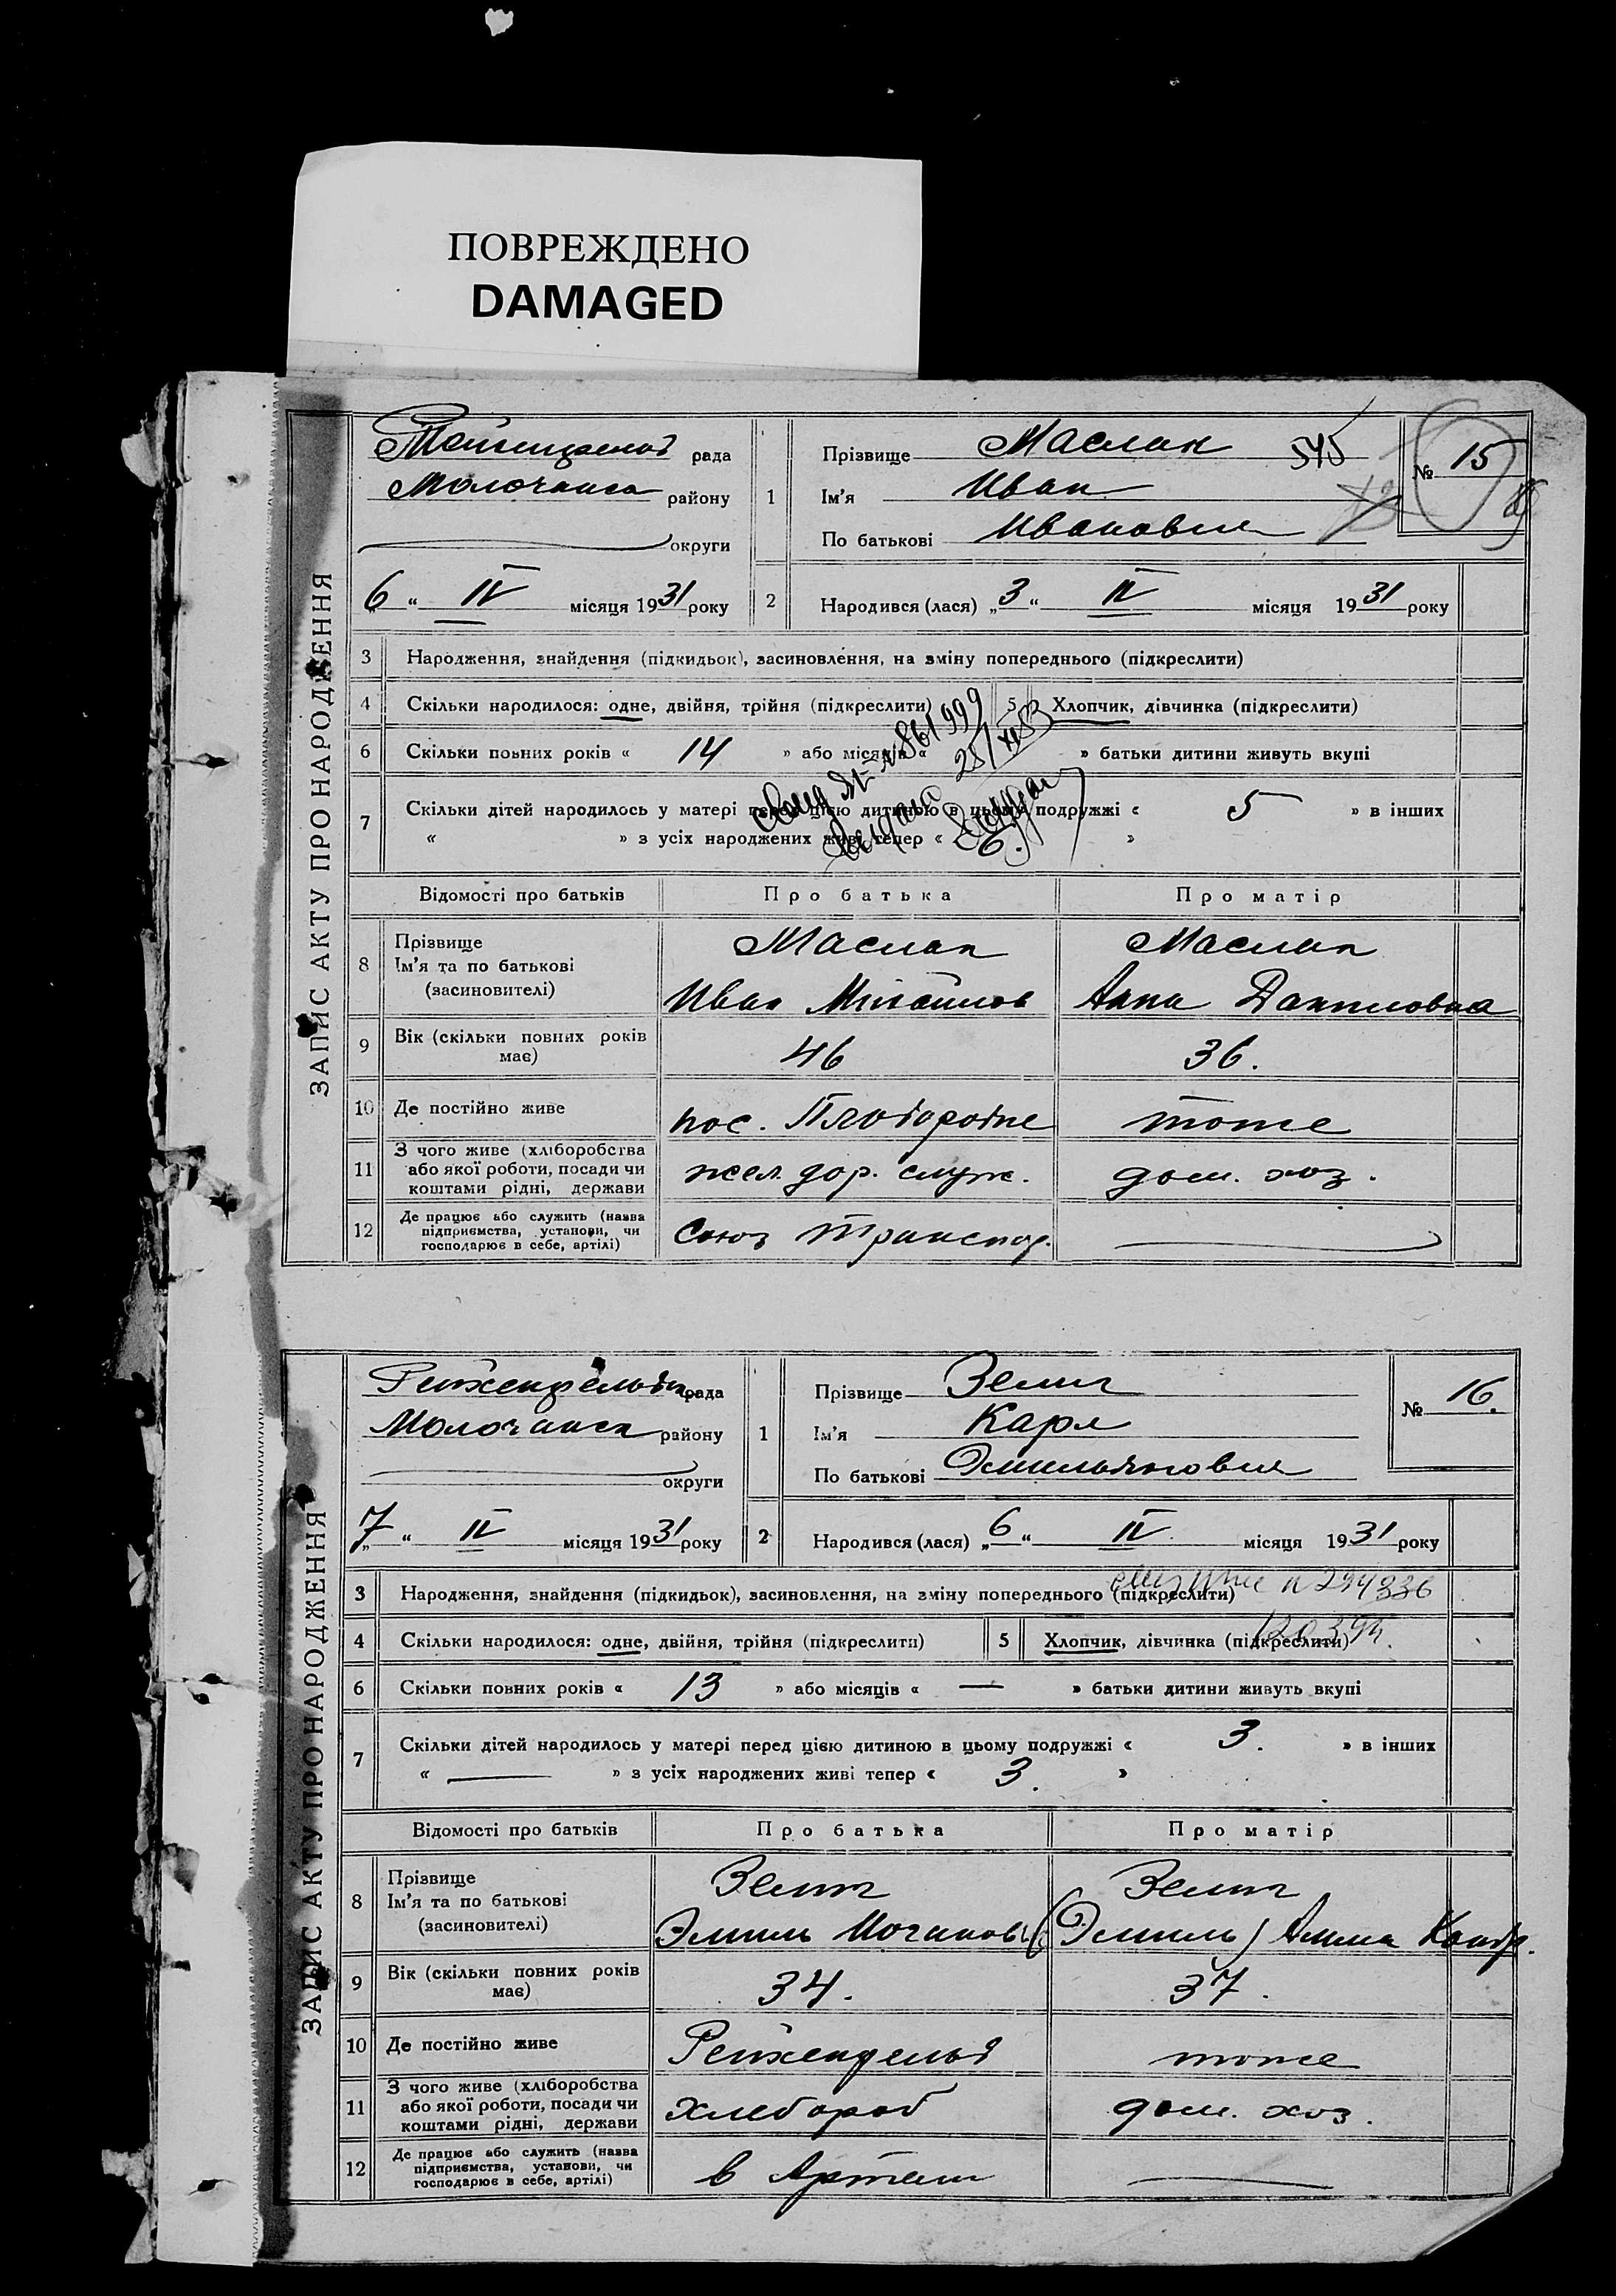 ПОВРЕЖДЕНО
DAMAGED
ЗАПИС АКТУ ПРО НАРОДЖЕННЯ
рада
района
Молочанск району
округи
„6“ IV місяця 1931 року
1
Прізвище Маслак 545
Ім'я Иван
По батькові Иванович
№ 15
2 Народився (лася) „3“ IV місяця 1931 року
3 Народження, знайдення (підкидьок), засиновлення, на зміну попереднього (підкреслити)
4 Скільки народилося: одне, двійня, трійня (підкреслити) 5 Хлопчик, дівчинка (підкреслити)
6 Скільки повних років « 14 » або місяців « » батьки дитини живуть вкупі
7 Скільки дітей народилось у матері перед цією дитиною в цьому подружжі « 5 » в інших
« » з усіх народжених живі тепер « 6 »
861999
выдано 28/XI 53
Відомості про батьків Про батька Про матір
8 Прізвище
Ім'я та по батькові
(засиновителі)
Маслак Маслак
Иван Михайлов Анна Даниловна
9 Вік (скільки повних років
має)
46 36.
10 Де постійно живе пос. Плодородне тоже
11 З чого живе (хліборобства
або якої роботи, посади чи
коштами рідні, держави
жел. дор. служ. дом. хоз.
12 Де працює або служить (назва
підприємства, установи, чи
господарює в себе, артілі)
Союз Транспор.
ЗАПИС АКТУ ПРО НАРОДЖЕННЯ
Рейхенфельдск рада
Молочанск району
округи
„7“ IV місяця 1931 року
1
Прізвище Зелиг
Ім'я Карл
По батькові Эмильянович
№ 16.
2 Народився (лася) „6“ IV місяця 1931 року
3 Народження, знайдення (підкидьок), засиновлення, на зміну попереднього (підкреслити)
4 Скільки народилося: одне, двійня, трійня (підкреслити) 5 Хлопчик, дівчинка (підкреслити)
6 Скільки повних років « 13 » або місяців « — » батьки дитини живуть вкупі
7 Скільки дітей народилось у матері перед цією дитиною в цьому подружжі « 3. » в інших
« — » з усіх народжених живі тепер « 3. »
Відомості про батьків Про батька Про матір
8 Прізвище
Ім'я та по батькові
(засиновителі)
Зелиг Зелиг
Эмиль (Эмиль)
9 Вік (скільки повних років
має)
34. 37.
10 Де постійно живе Рейхенфельд тоже
11 З чого живе (хліборобства
або якої роботи, посади чи
коштами рідні, держави
хлебороб дом. хоз.
12 Де працює або служить (назва
підприємства, установи, чи
господарює в себе, артілі)
в Артели